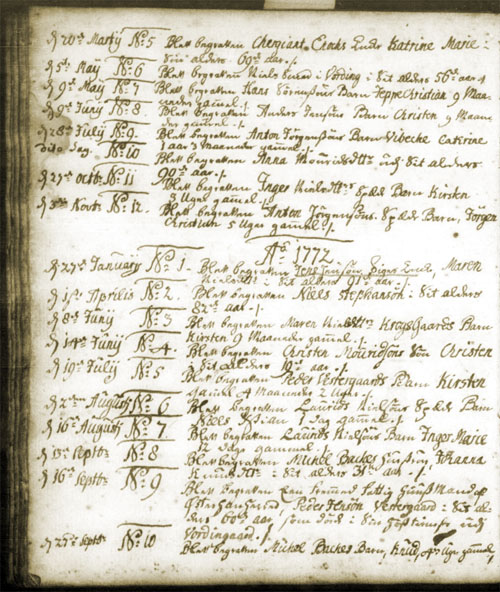 d 20de Martÿ No 5 Blev begraven Enochs Enke Katrine Marie
Sin alder 69 aar
d 5te Maÿ No 6 Blev begraven Niels i Vording : Sit alders 56de aar
d 9de Maÿ No 7 Blev begraven Hans Sörensöns Barn JeppeChristian 9 Maa
neder gamel
d 9de Junÿ No 8 Blev begraven Anders Jensöns Barn Christen 9 Maane
der gamel
d 28de Julÿ No 9 Blev begraven Anton Jörgensöns Barn Vibecke Catirine
1 aar 3 Maaneder gamel
dito dag No 10 Blev begraven Anna Mouridsdtr udi Sit alders
90de aar
d 27de octb No 11 Blev begraven Inger Nielsdtrs Spæd Barn Kirsten
3 Uger gamel
d 3de Novb No 12 Blev begraven Anton Jörgensöns Spæd Barn, Jörgen
Christian 5 Uger gamel
Ao 1772
d 27de Januarÿ No 1 Blev begraven Jens Enke, Maren
Nielsdtr : Sit alders 91de aar
d 1ste Aprilis No 2 Blev begraven Niels Stephansön : Sit alders
82de aar
d 8de Junÿ No 3 Blev begraven Maren Nielsdtrs Krogsgaards Barn
Kirsten 9 Maaneder gamel
d 14de Junÿ No 4 Blev begraven Christen Mouridsöns Sön Christen
: Sit alders 19de aar
d 19de Julÿ No 5 Blev begraven Peder Vestergaards Barn Kirsten
gamel 4 Maaneder 2 Uger
d 2den Augustÿ No 6 Blev begraven Laurids Nielsöns Spæd Barn
Niels 1 dag gamel
d 16de Augustÿ No 7 Blev begraven Laurids Nielsöns Barn Inger Marie
12 dage gamel
d 13de Septbr No 8 Blev begraven Michel Backes Hustru Johanna
Knudsdtr : Sit alders 31de aar
d 16de Septbr No 9 Blev begraven Een fremmed fattig Huusmand af
Peder Jensön Vestergaard : Sit al
ders 60de aar, som döde : Sin udj
Vordingaard
d 27de Septbr No 10 Blev begraven Michel Backes Barn, Knud, Uger gamel